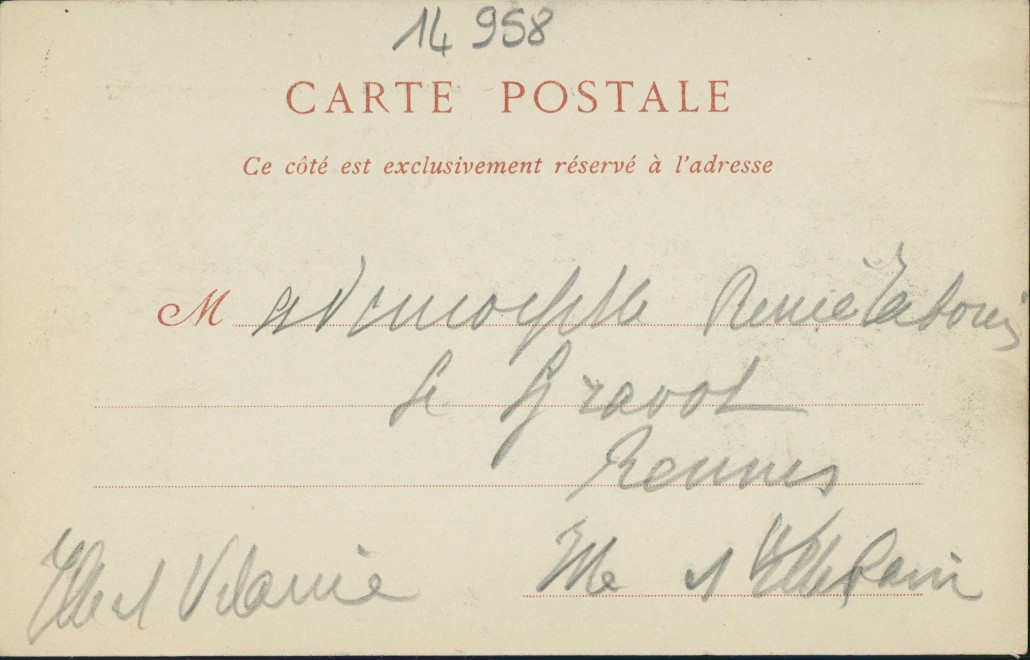 14 958
CARTE POSTALE
Ce côté est exclusivement réservé à l'adresse
Mademoiselle Renée
Le Gravot
Rennes
Ille et
Ille et Vilanie